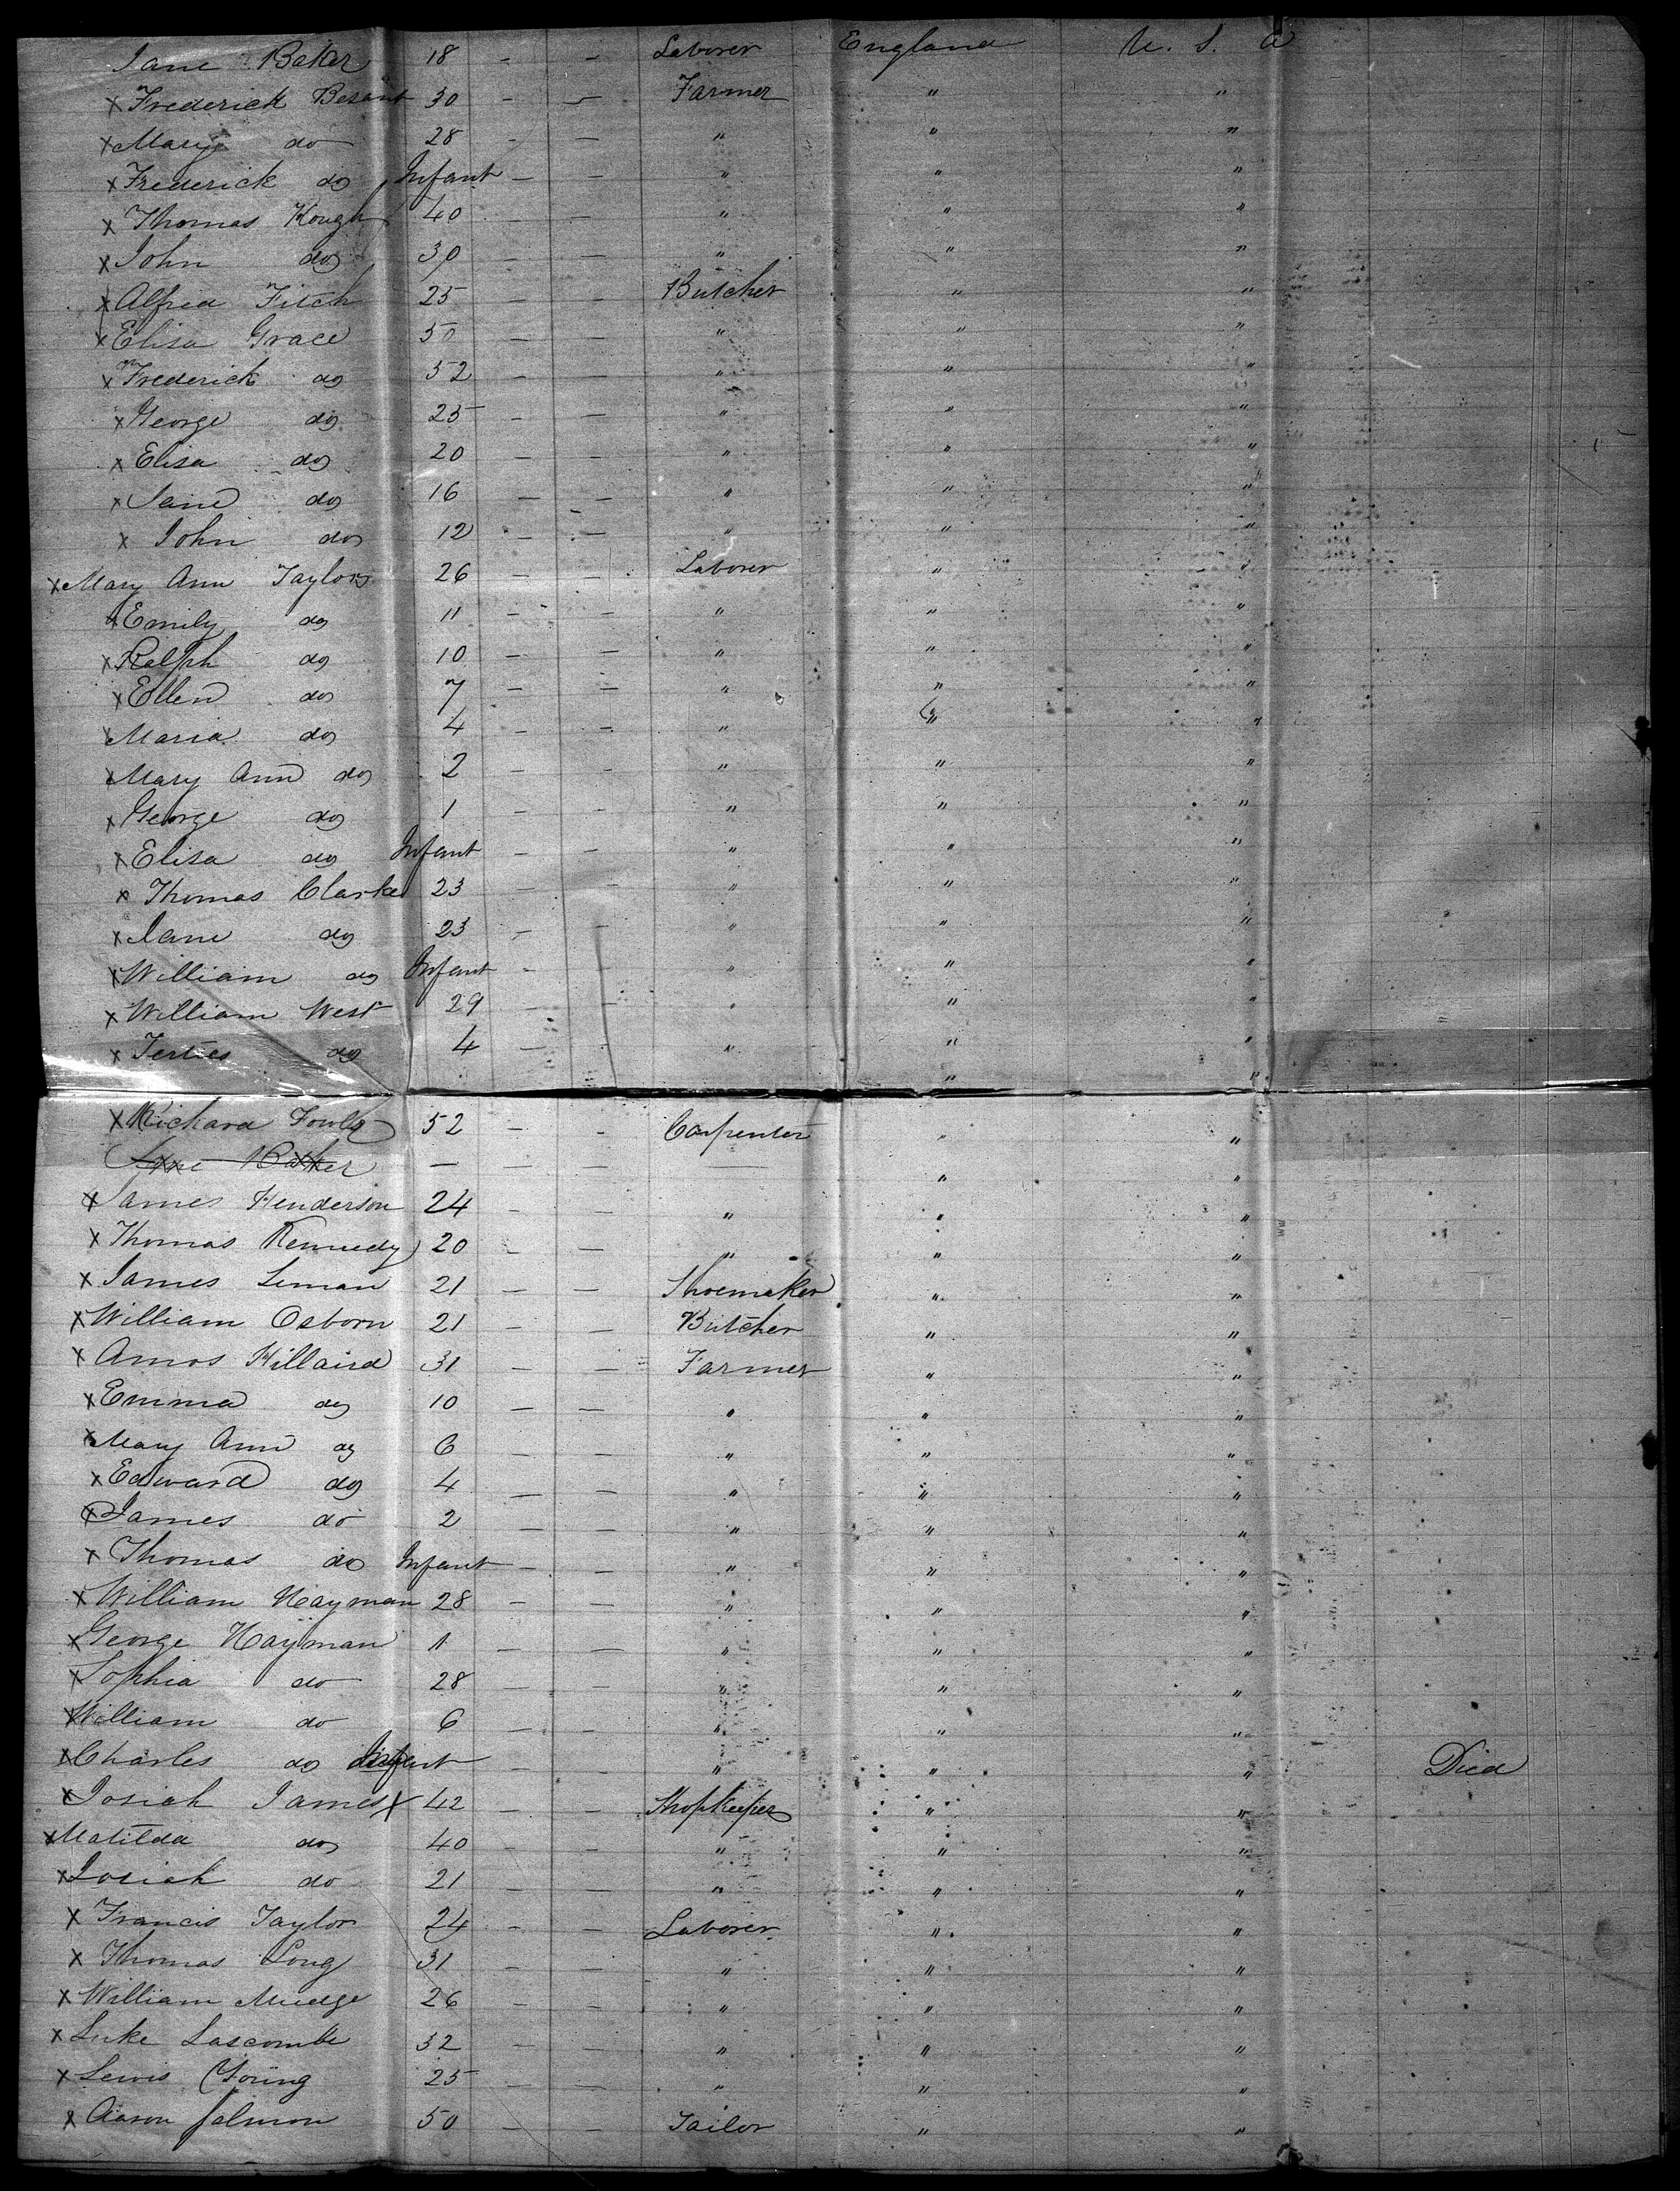 Jane Baker 18 - - Laborer England U. S. A
x Frederick Besant 30 - - Farmer " "
x Mary do 28 - - " " "
x Frederick do Infant - - " " "
x Thomas Kough 40 - - " " "
x John do 30 - - " " "
x Alfred Fitch 25 - - Butcher " "
x Elisa Grace 50 - - " " "
x Frederick do 52 - - " " "
x George do 25 - - " " "
x Elisa do 20 - - " " "
x Jane do 16 - - " " "
x John do 12 - - " " "
x Mary Ann Taylor 26 - - Laborer " "
x Emily do 11 - - " " "
x Ralph do 10 - - " " "
x Ellen do 7 - - " " "
x Maria do 4 - - " " "
x Mary Ann do 2 - - " " "
x George do 1 - - " " "
x Elisa do Infant - - " " "
x Thomas Clarke 23 - - " " "
x Jane do 23 - - " " "
x William do Infant - - " " "
x William West 29 - - " " "
x do 4 - - " " "
" "
x Richard Fowler 52 - - Carpenter " "
Jane Baker - - - - " "
x James Henderson 24 - - " " "
x Thomas Kennedy 20 - - " " "
x James Leman 21 - - Shoemaker " "
x William Osborn 21 - - Butcher " "
x Amos Hillaird 31 - - Farmer " "
x Emma do 10 - - " " "
x Mary Ann do 6 - - " " "
x Edward do 4 - - " " "
x James do 2 - - " " "
x Thomas do Infant - - " " "
x William Hayman 28 - - " " "
x George Hayman 1 - - " " "
x Sophia do 28 - - " " "
x William do 6 - - " " "
x Charles do Infant - - " " " Died
x Josiah James x 42 - - Shopkeeper " "
x Matilda do 40 - - " " "
x Josiah do 21 - - " " "
x Francis Taylor 24 - - Laborer " "
x Thomas Long 31 - - " " "
x William Mudge 26 - - " " "
x Luke Lascombe 32 - - " " "
x Lewis Young 25 - - " " "
x Aaron Salmon 50 - - Tailor " "